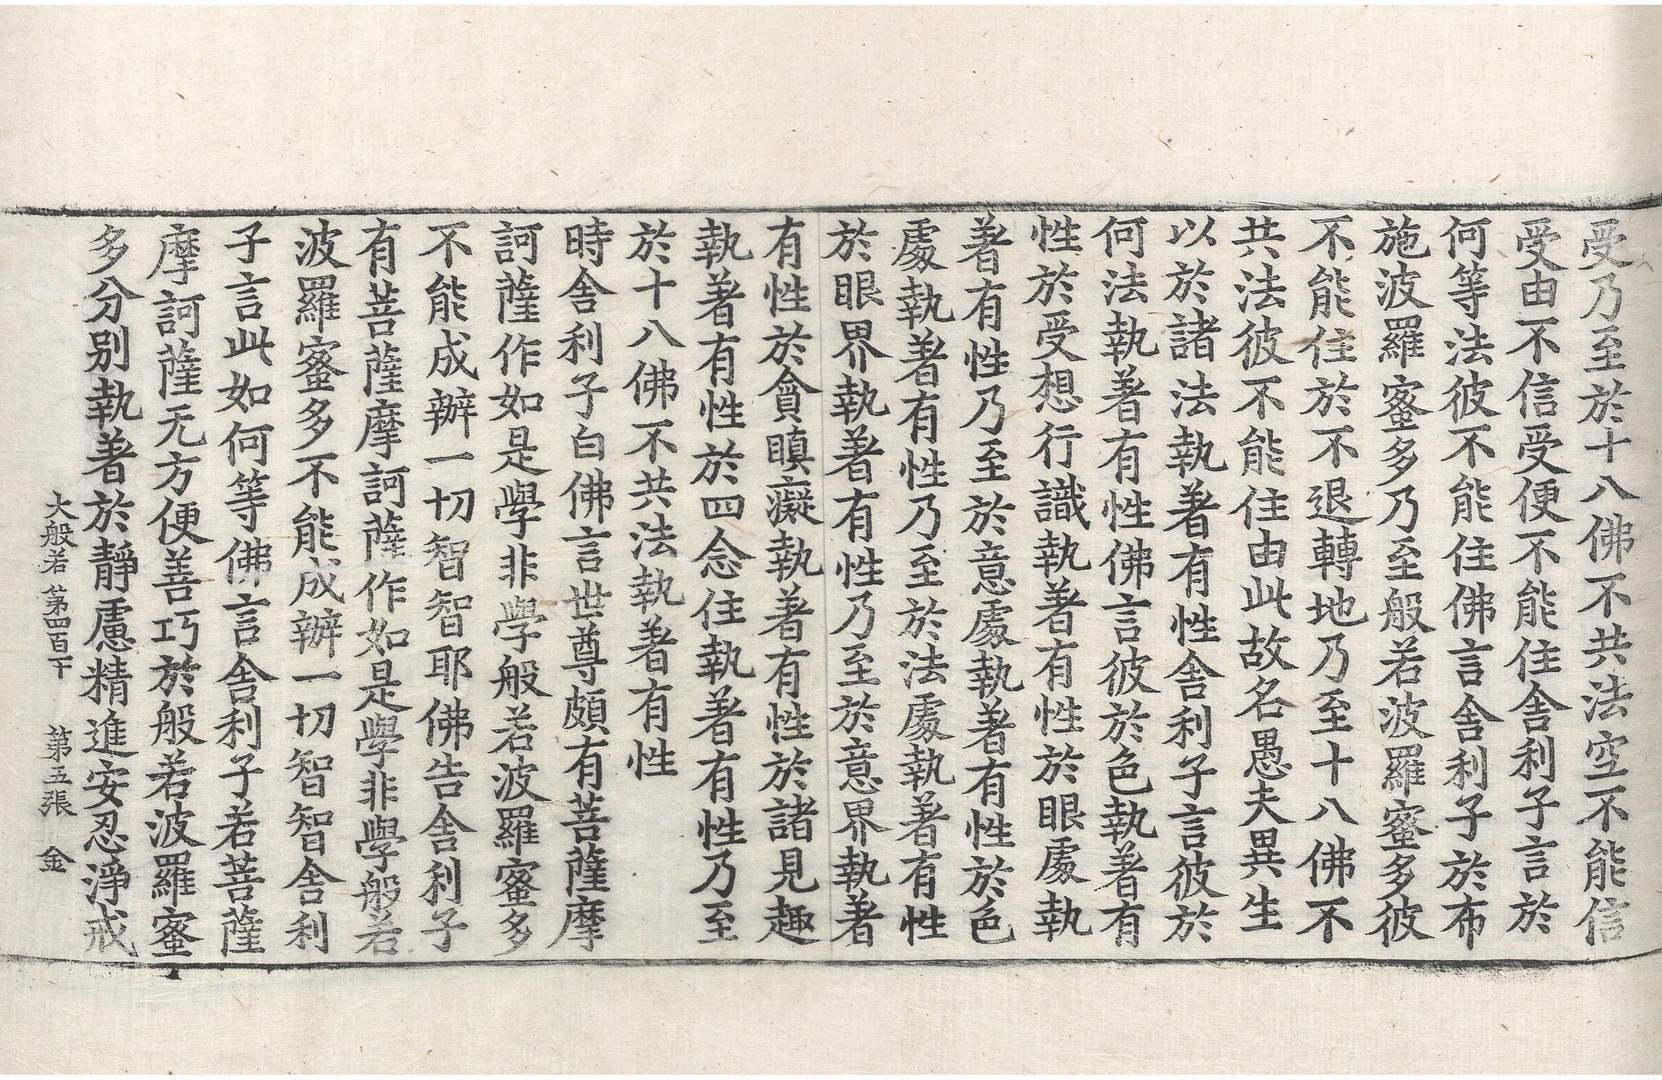 受乃至於十八佛不共法空不能信
受由不信受便不能住舍利子言於
何等法彼不能住佛言舍利子於布
施波羅蜜多乃至般若波羅蜜多彼
不能住於不退轉地乃至十八佛不
共法彼不能住由此故名愚夫異生
以於諸法執著有性舍利子言彼於
何法執著有性佛言彼於色執著有
性於受想行識執著有性於眼處執
著有性乃至於意處執著有性於色
處執著有性乃至於法處執著有性
於眼界執著有性乃至於意界執著
有性於貪瞋癡執著有性於諸見趣
執著有性於四念住執著有性乃至
於十八佛不共法執著有性
時舍利子白佛言世尊頗有菩薩摩
訶薩作如是學非學般若波羅蜜多
不能成辦一切智智耶佛告舍利子
有菩薩摩訶薩作如是學非學般若
波羅蜜多不能成辦一切智智舍利
子言此如何等佛言舍利子若菩薩
摩訶薩无方便善巧於般若波羅蜜
多分別執著於靜慮精進安忍淨戒
大般若 第四百十 第五張 金